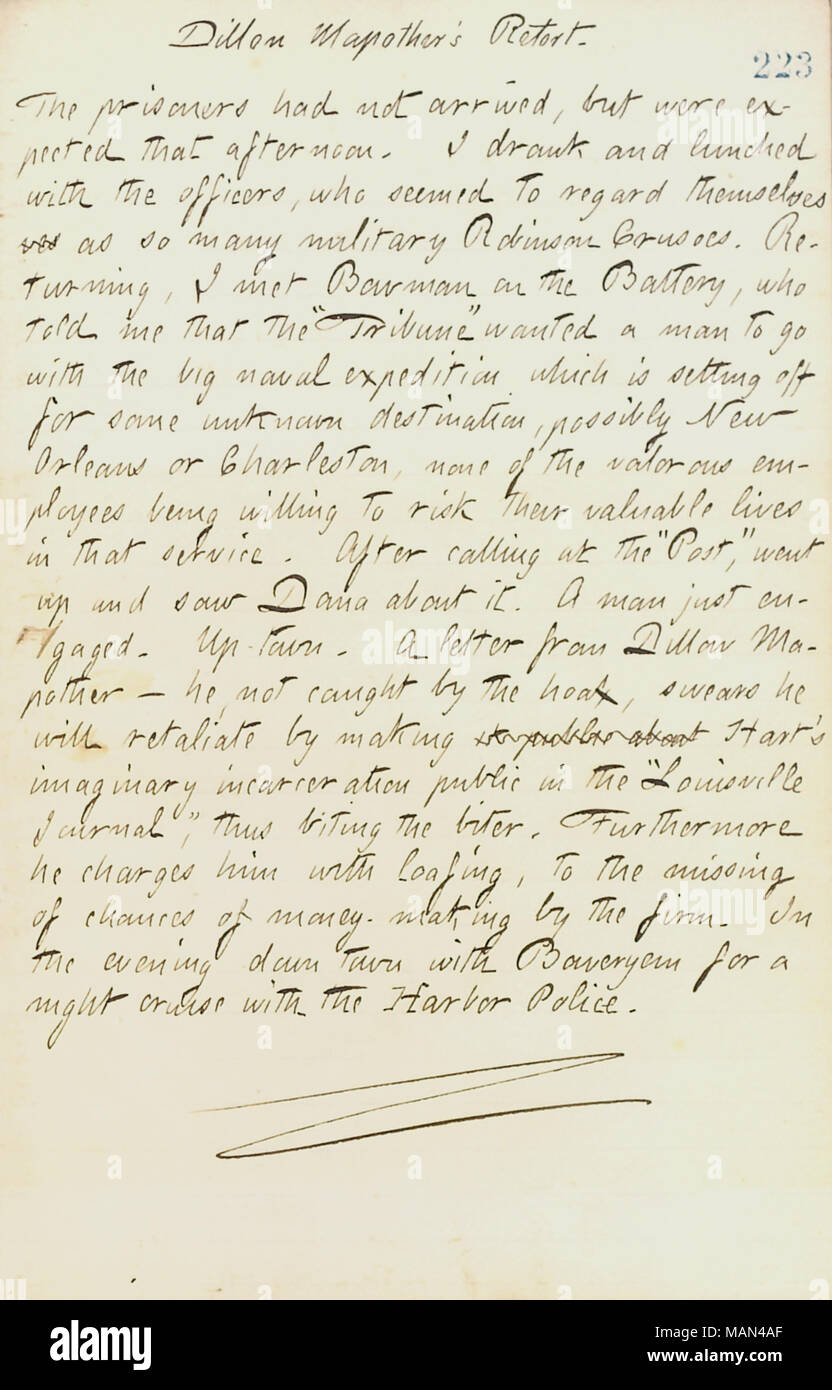 Dillon Mapother's Retort.
223
The prisoners had not arrived, but were ex-
pected that afternoon. I drank and lunched
with the officers, who seemed to regard themselves
ves as so many military Robinson Crusoes. Re-
turning, I met Bowman on the Battery, who
told me that the "Tribune" wanted a man to go
with the big naval expedition which is setting off
for some unknown destination, possibly New
Orleans or Charleston, none of the valorous em-
ployees being willing to risk their valuable lives
in that service. After calling at the "Post," went
up and saw Dana about it. A man just en-
gaged. Up-town. A letter from Dillon Ma-
pother — he, not caught by the hoax, swears he
will retaliate by making public about Hart's
imaginary incarceration public in the "Louisville
Journal", thus biting the biter. Furthermore
he charges him with loafing, to the missing
of chances of money-making by the firm. In
the evening down town with Boweryem for a
night cruise with the Harbor Police.
alamy
Image ID: MAN4AF
www.alamy.com